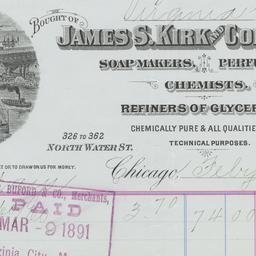 Virginia
BOUGHT OF
JAMES S. KIRK AND CO
SOAP MAKERS, PERF
CHEMISTS,
REFINERS OF GLYCER
326 TO 362
NORTH WATER ST.
CHEMICALLY PURE & ALL QUALITIE
TECHNICAL PURPOSES.
ET OR TO DRAW ON US FOR MONEY.
Chicago, Feby
BUFORD & CO., Merchants,
PAID
MAR -9 1891
inia City, M
3.70 74 00